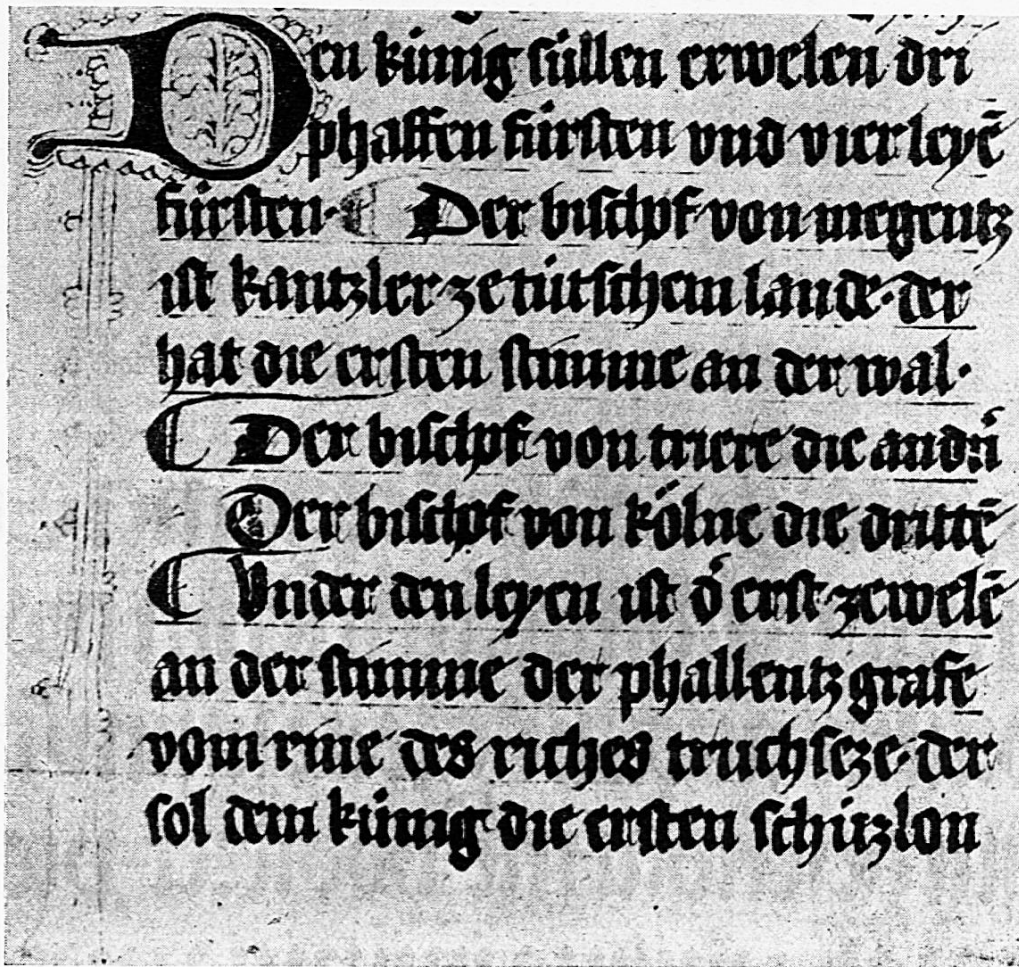 Den künig süllen erwelen dri
phaffen fürsten vnd vier leyē
fürsten· Der bischof von megentz
ist kantzler ze tütschem lande· der
hat die ersten stimme an der wal·
Der bischof von triere die andn̄
Der bischof von kölne die drittē
Vnder den leyen ist d̾ erst ze welē
an der stimme der phallentz grafe
vom rine des riches truchseze· der
sol dem künig die ersten schüzlon